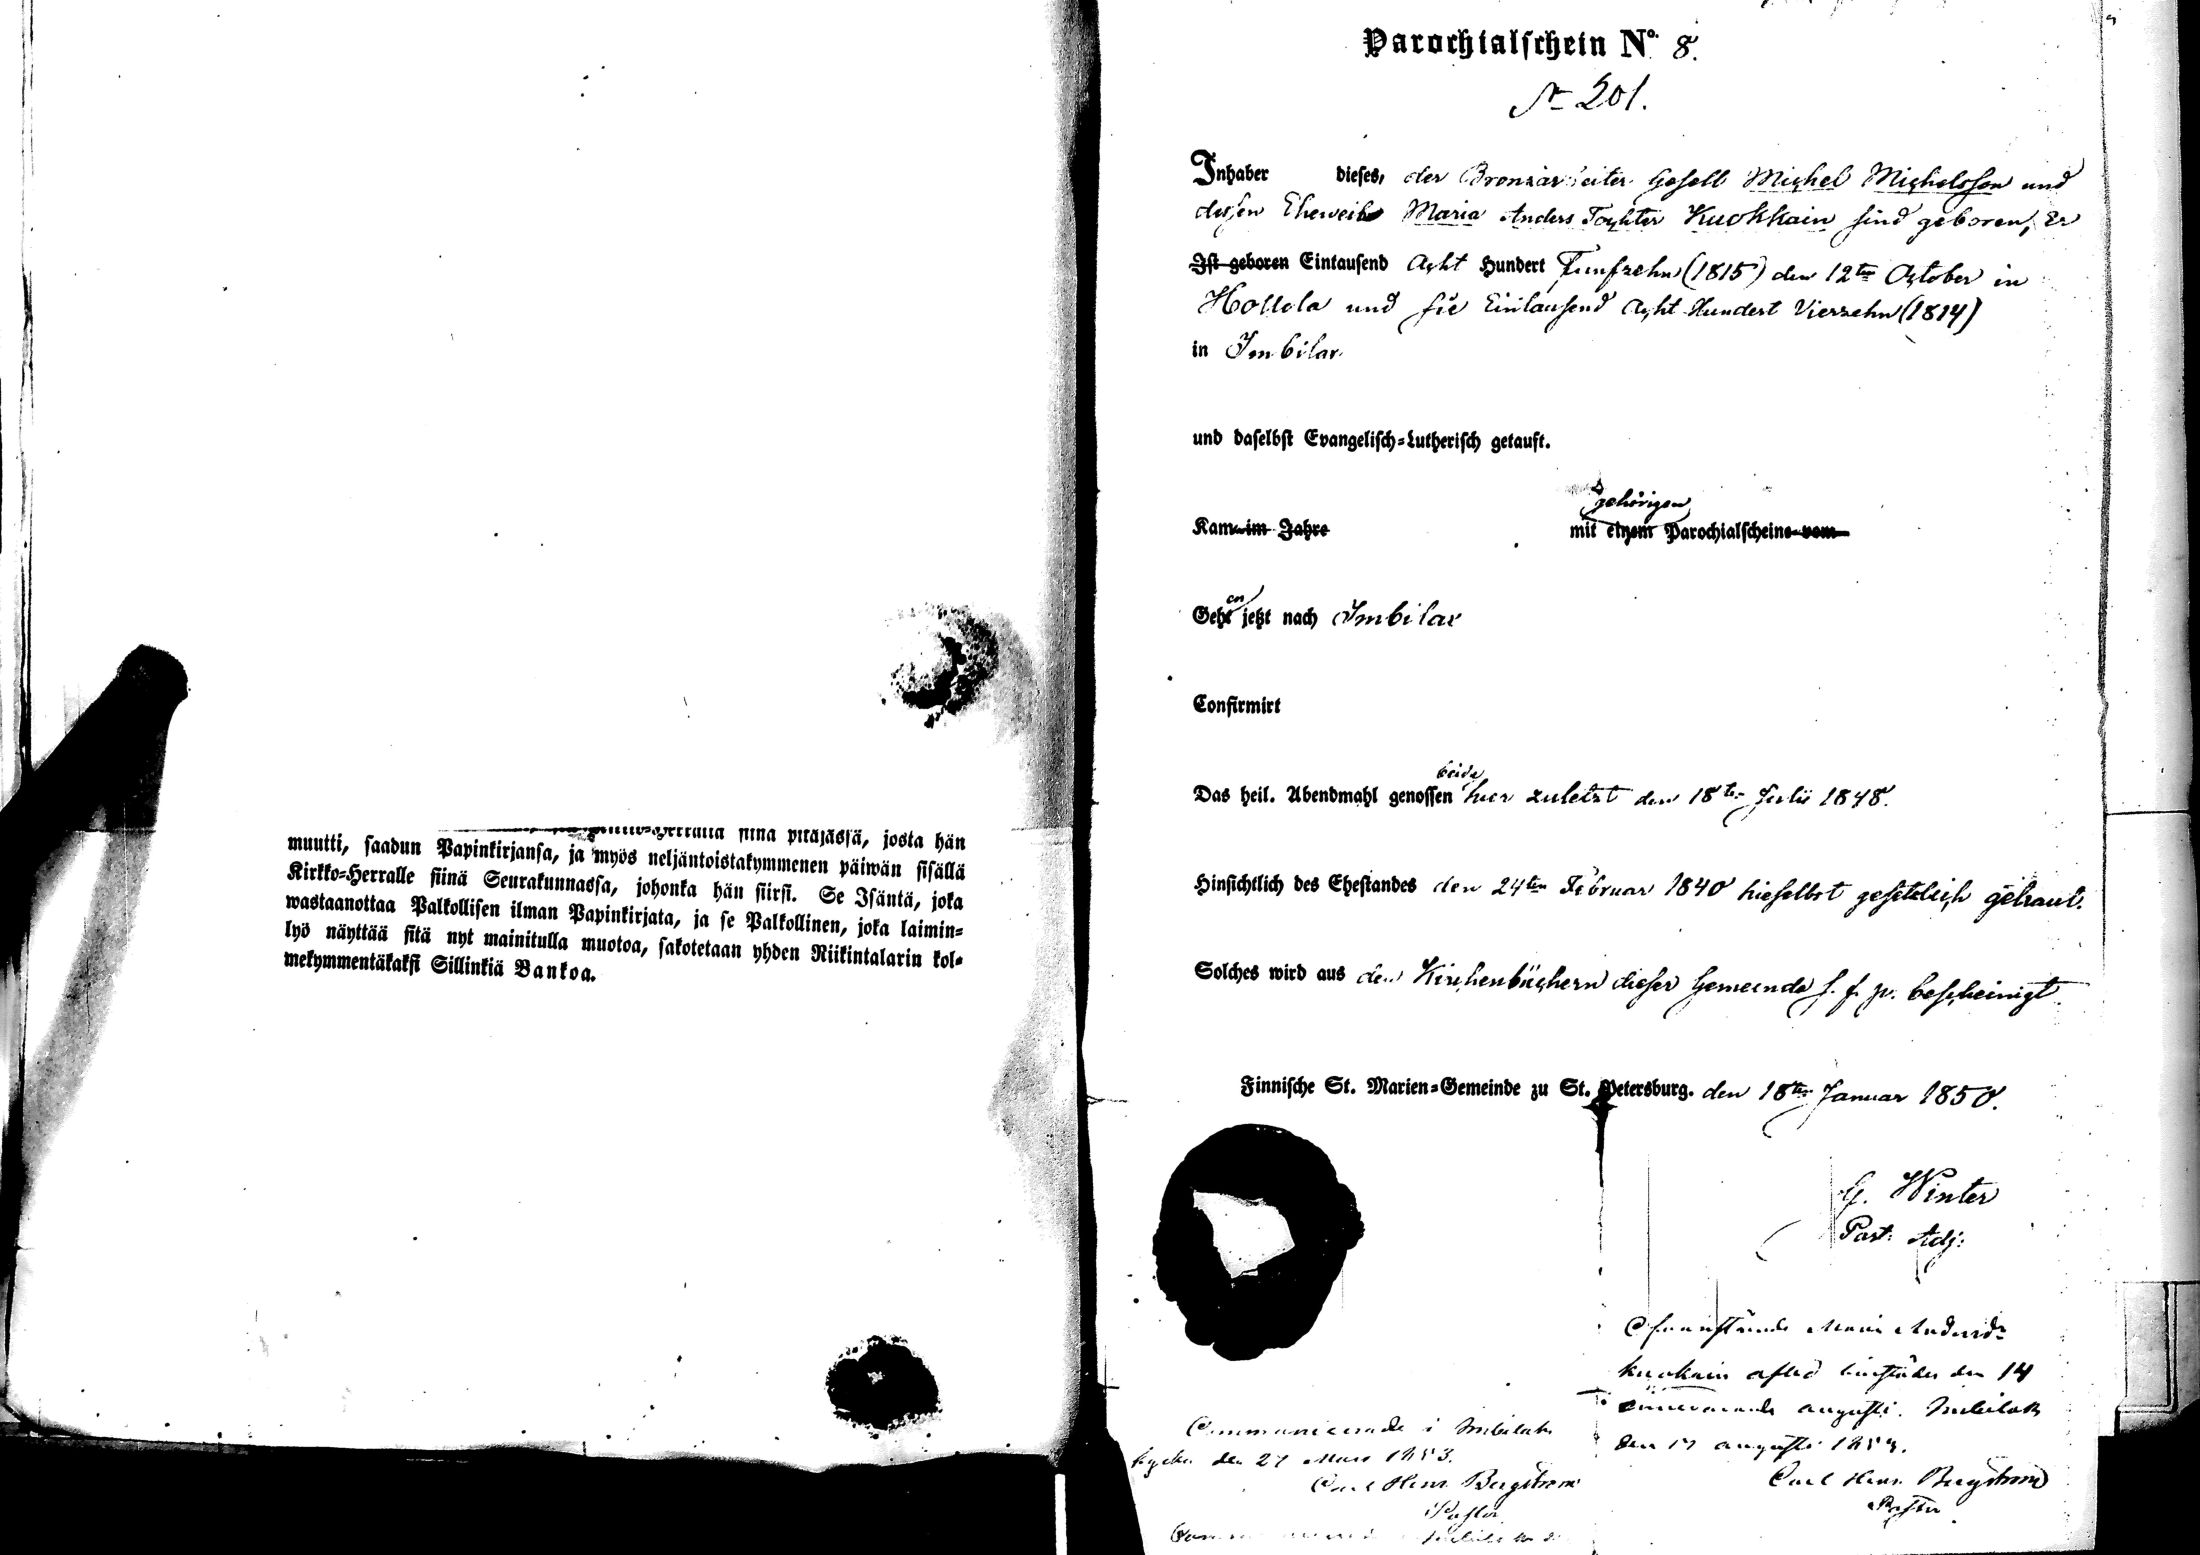 muutti, saadun Papinkirjansa, ja myös neljäntoistakymmenen päiwän sisällä
Kirkko=Herralle siinä Seurakunnassa, johonka hän siirsi. Se Isäntä, joka
wastaanottaa Palkollisen ilman Papinkirjata, ja se Palkollinen, joka laimin=
lyö näyttää sitä nyt mainitulla muotoa, sakotetaan yhden Riikintalarin kol=
mekymmentäkaksi Sillinkiä Bankoa.
Parochialschein No. 8.
201.
Inhaber dieses, der Bronzarbeiter Gesell Michel Michelsson und
dessen Eheweib Maria Anders Tochter Kuokkain sind geboren, Er
Ist geboren Eintausend Acht Hundert Funfzehn (1815) den 12ten October in
Hollola und sie Eintausend Acht Hundert Vierzehn (1814)
in Imbilax
und daselbst Evangelisch=Lutherisch getauft.
gehörigen
Kam im Jahre mit einem Parochialscheine vom
en
Geht jetzt nach Imbilax
Confirmirt
beide
Das heil. Abendmahl genossen hier zuletzt den 18ten Julii 1848.
Hinsichtlich des Ehestandes den 24ten Februar 1840 hieselbst gesetzlich getraut.
Solches wird aus den Kirchenbüchern dieser Gemeinde s. f. p. bescheinigt
Finnische St. Marien=Gemeinde zu St. Petersburg. den 18ten Januar 1850.
G. Winter
Past. Adj:
Maria Andersdr
Kuokain afled den 14
augusti. Imbilaks
den 17 augusti
Carl Henr. Bergstrom
Pastor
Communicerade i Imbilaks
kyrka den 27 Mars 1853.
Carl Henr. Bergstrom
Pastor